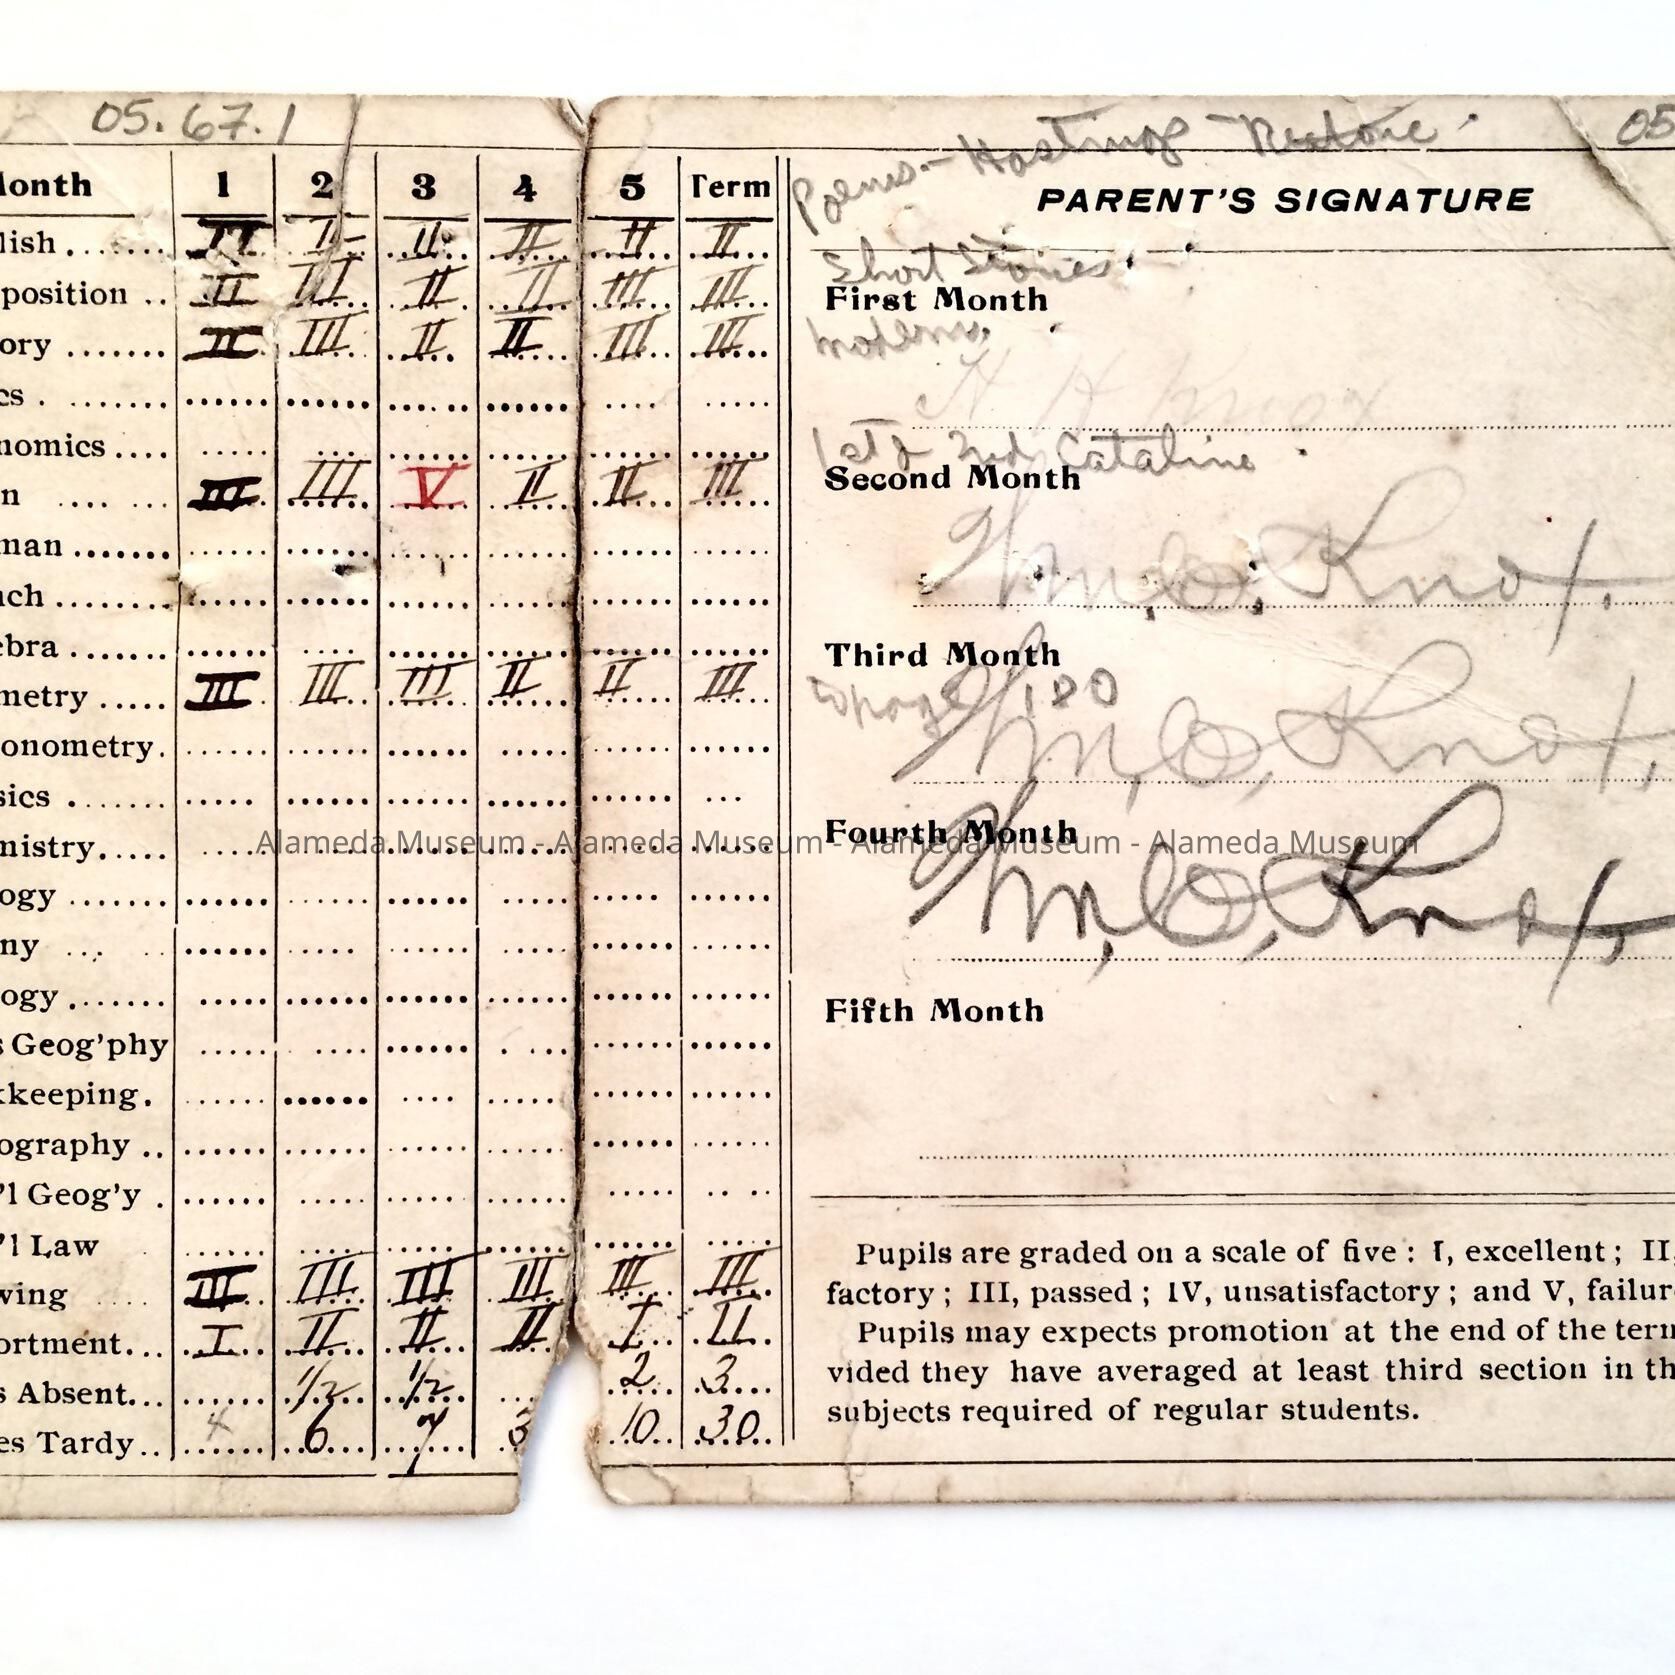 05.67.1
Month 1 2 3 4 5 Term
lish ....... II II II II II II
position .. II III II II III III
ory ....... II III II II III III
cs . .......
nomics ....
n .... ... III III V II II III
man .......
nch .......
ebra .......
metry ..... III III III II II III
onometry.
sics .......
mistry.....
ogy .......
ny ... ..
ogy .......
s Geog'phy
kkeeping.
ography ..
'l Geog'y .
'l Law
wing .... III III III III III III
ortment... I II II II I II
s Absent... 1/2 1/2 2 3
es Tardy.. 4 6 7 3 10 30
Poems - Hastings -
05
PARENT'S SIGNATURE
Short Stories
First Month
H H Knox
1st & 2nd Cataline
Second Month
Wm. O. Knox.
Third Month
to page 180
Wm. O. Knox.
Fourth Month
Wm. O. Knox.
Fifth Month
Pupils are graded on a scale of five : I, excellent ; II,
factory ; III, passed ; IV, unsatisfactory ; and V, failur
Pupils may expects promotion at the end of the term
vided they have averaged at least third section in th
subjects required of regular students.
Alameda Museum - Alameda Museum - Alameda Museum - Alameda Museum